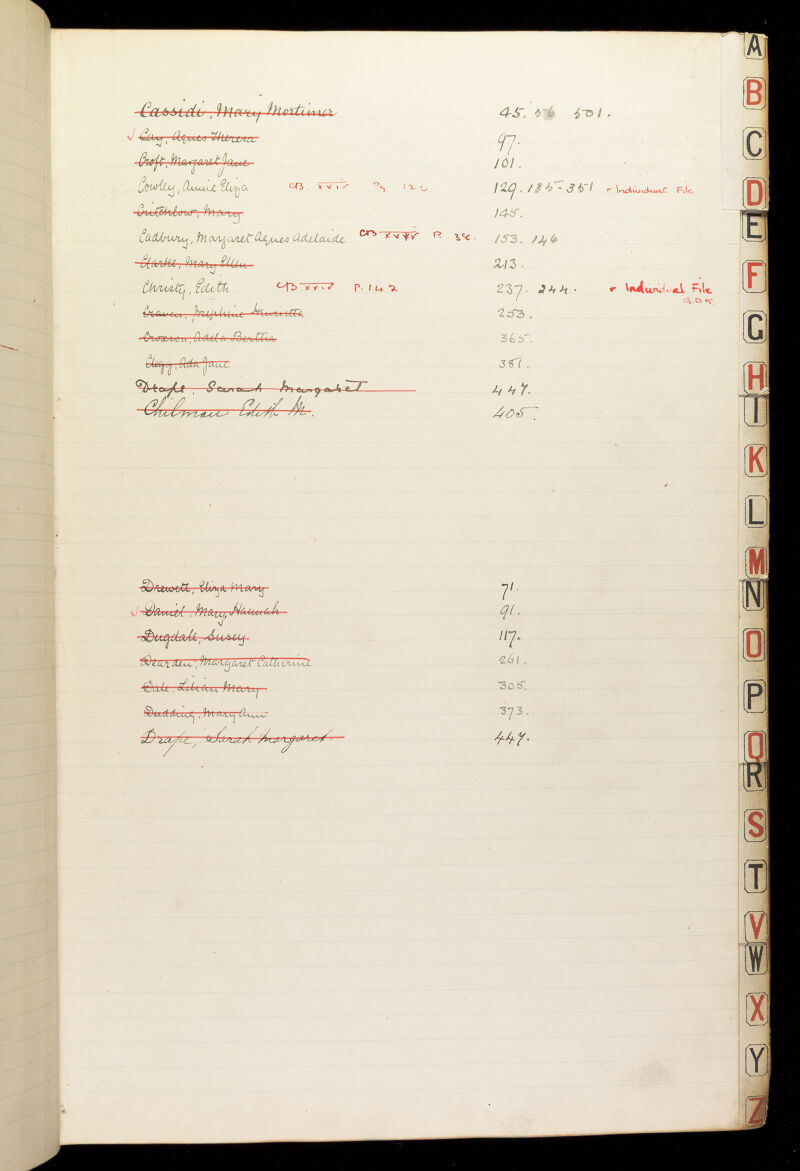 Cassidi, Mary Mortimer 45. 56 501.
Cay, Agnes Theresa 97.
Croft, Margaret Jane 101.
Cowley, Annie Eliza CB. XXIV Pg 126 129. 185-351 + Individual File
Critchlow, Mary 145.
Cadbury, Margaret Agnes Adelaide CB P. 38. 153. 146
Clarke, Mary Ellen 213.
Christy, Edith CB XXIV P. 142 237. 244. + Individual File
G.O.K.
Craven, Josephine Henrietta 253.
Croxson, Adela Bertha 365.
Clegg, Ada Jane 381.
Drape, Sarah Margaret 447.
Chilman Edith M. 405.
Drewett, Eliza Mary 71.
Daniel, Mary Hannah 91.
Dugdale, Susey 117.
Dearden, Margaret Catherine 261.
Dale, Lilian Mary 305.
Dudding, Mary Ann 373.
Drape, Sarah Margaret 447.
A
B
C
D
E
F
G
H
I
K
L
M
N
O
P
Q
R
S
T
V
W
X
Y
Z